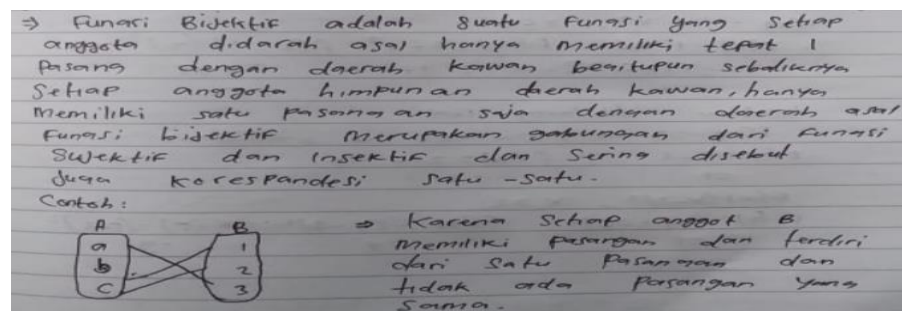 ⇒ Fungsi Bijektif adalah suatu fungsi yang setiap
anggota didarah asal hanya memiliki tepat 1
pasang dengan daerah kawan begitupun sebaliknya
Setiap anggota himpunan daerah kawan, hanya
memiliki satu pasangan saja dengan daerah asal
Fungsi bijektif merupakan gabungan dari fungsi
Sujektif dan insektif dan sering disebut
Juga korespandesi satu-satu.
Contoh:
A B
a 1
b 2
c 3
⇒ Karena Setiap anggot B
memiliki pasangan dan terdiri
dari satu pasangan dan
tidak ada pasangan yang
sama.